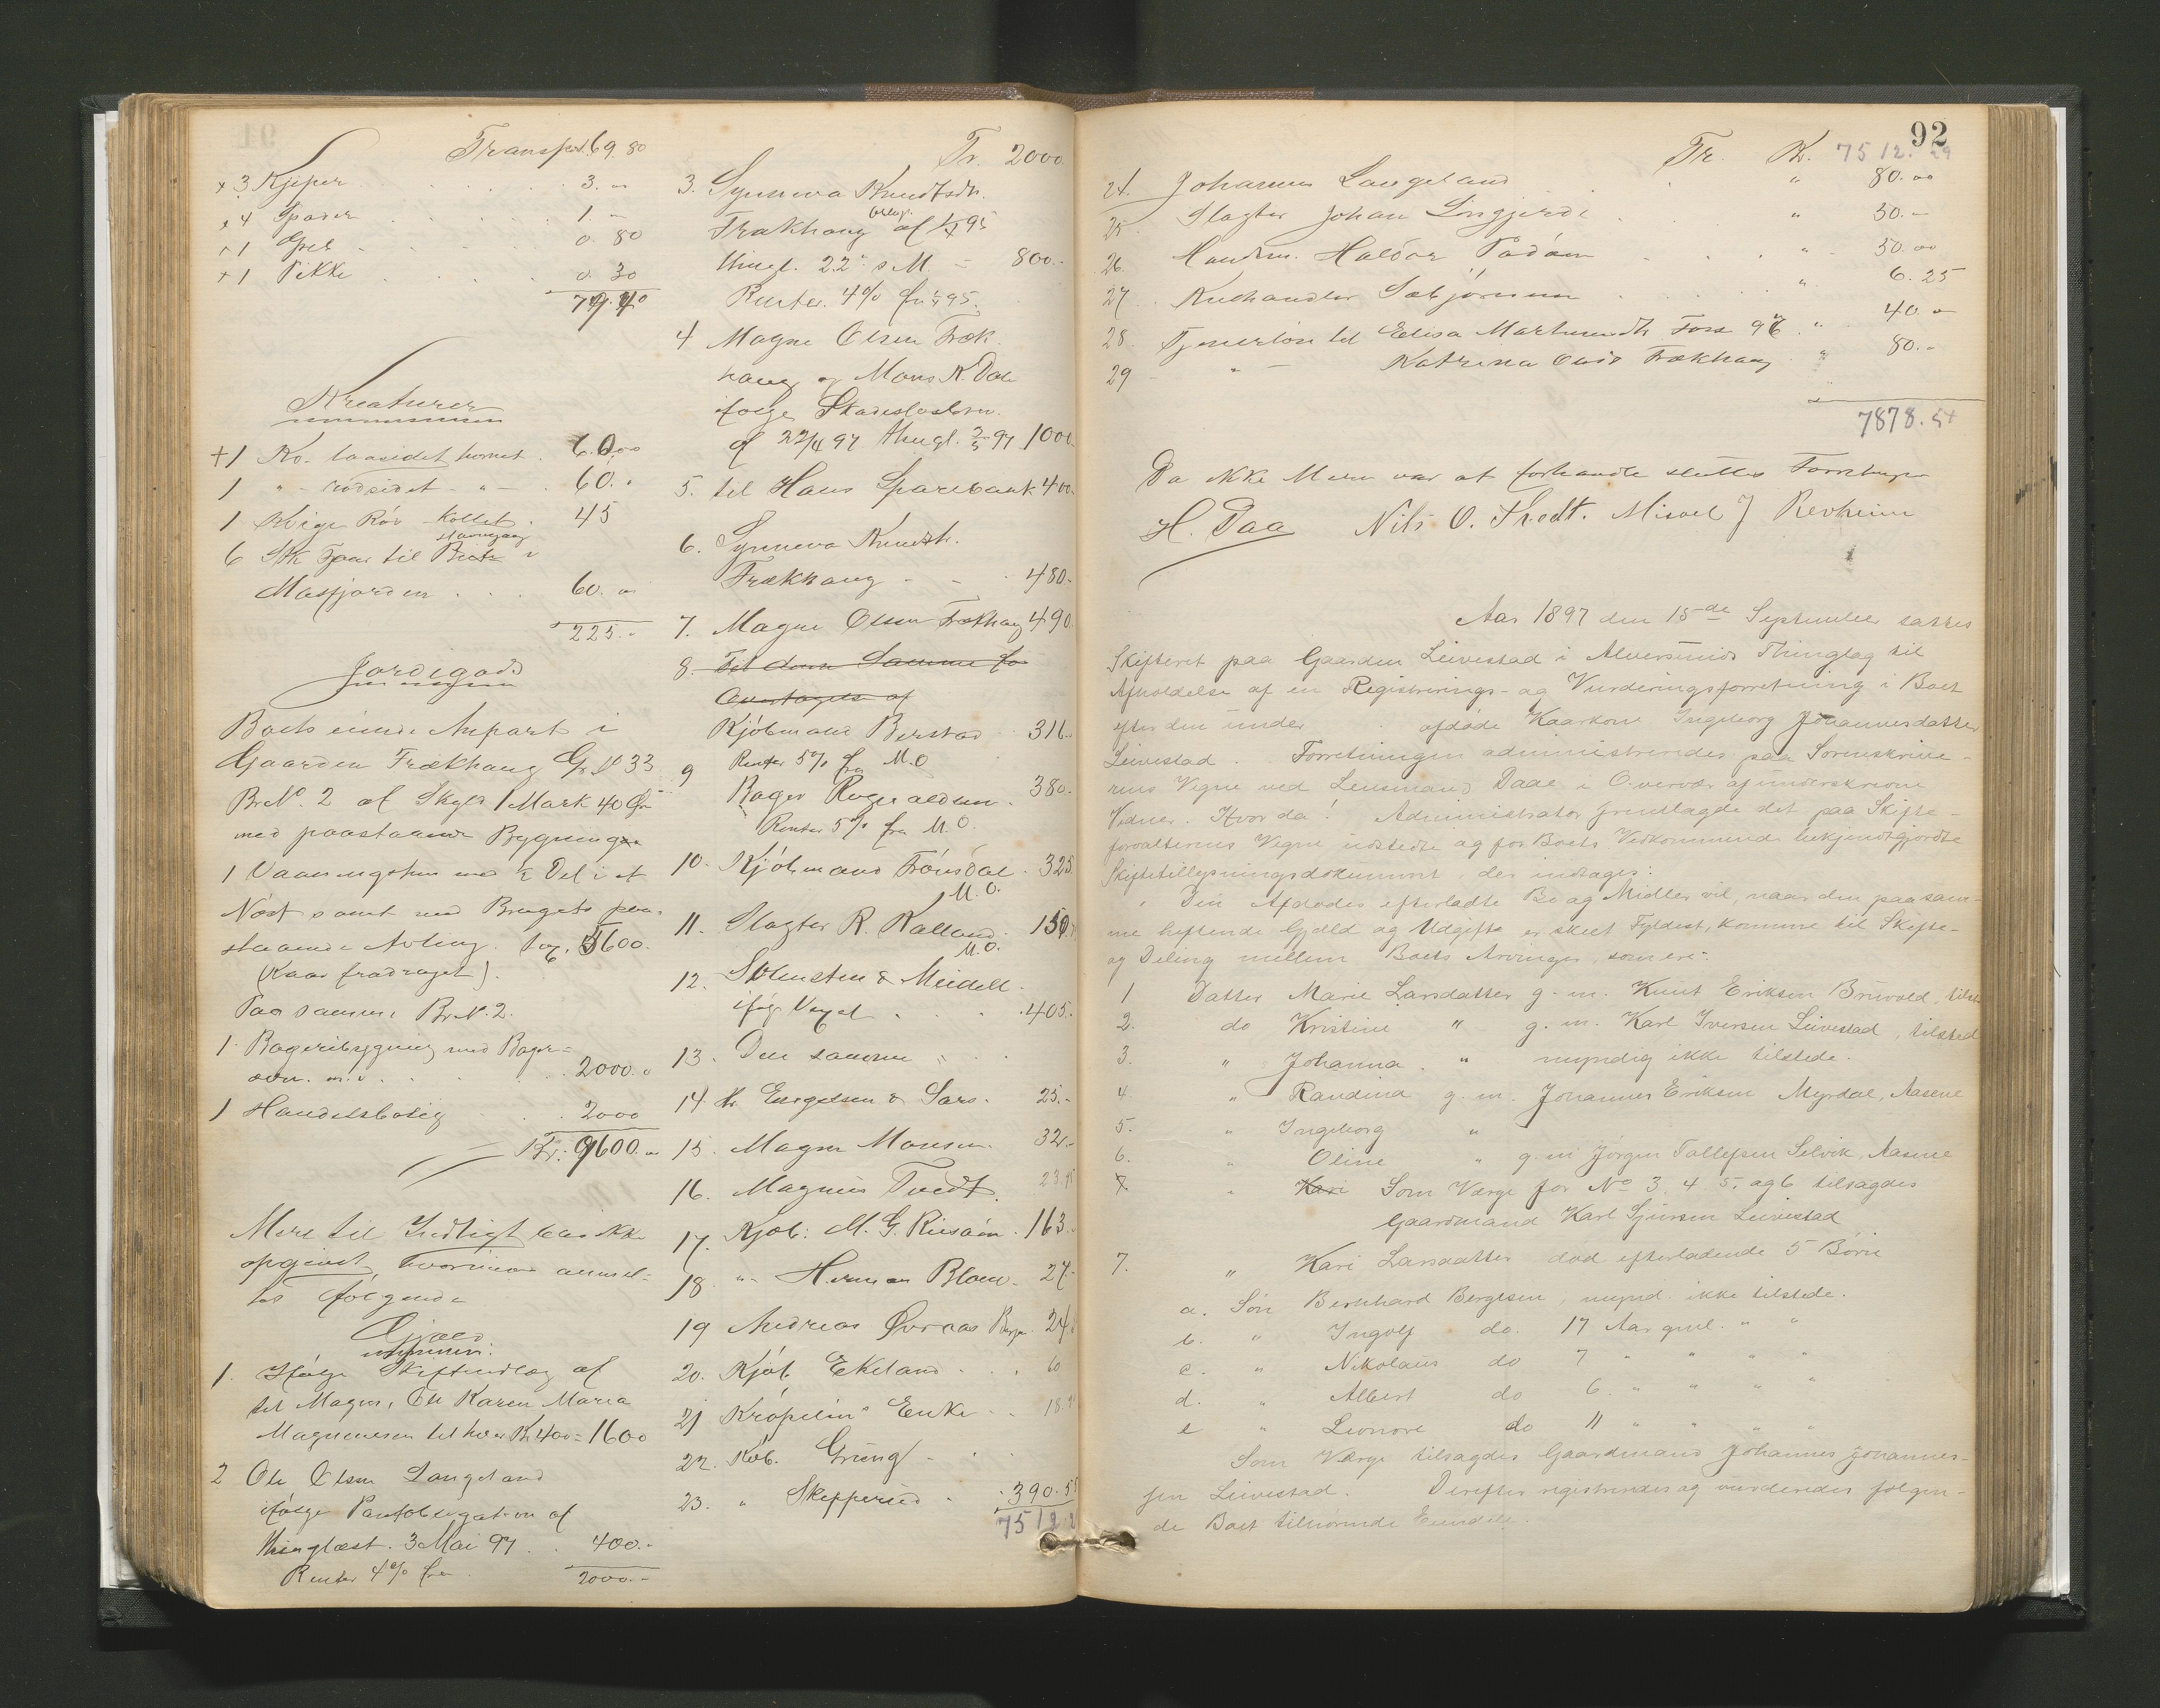 Transport 69 80
+3 Kjiper 3. "
+4 Spader 1. –
+1 Grev 0. 80
+1 Pikke 0. 30
Kreaturer
+1 Ko. taasidet hornet. 60.00
1 " – rødsidet – " – 60. "
1 Kvige Rød – Kollet. 45
6 Stk Faar til
Masfjorden 60. "
225. "
Jordigods
Boets eiende Anpart i
Gaarden Frækhaug Gr No 33
Br No. 2 af Skyld 1 Mark 40 Øre
med paastaaende Bygninger
1 Vaaningshus med ½ Del i et
Nøst samt med Brugets paa-
staaende Avling. 5600.
(Kaar fradraget).
Paa samme Br N. 2.
1 Bageribygning med Bager-
ovn. m. v. 2000. "
1 Handelsbolig 2000
Kr: 9600. "
Mere til Indtægt blev ikke
opgivet, hvorimod anmeld-
tes følgende
Gjæld
1. Ifølge Skifteudlæg af
til Magne, Ole Karen Maria
Magnesen til hver Kr 400 = 1600
2 Ole Olsen Langeland
ifølge Pantobligation af
thinglæst. 3 Mai 97 400. –
Renter 4% fra
2000. –
Tr. 2000
3. Synneva Knudtsdtr.
Frækhaug oblig. af 1/4 95
thingl. 22 s. M. – 800. –
Renter. 4% fra 1/4 95.
4 Magne Olsen Fræk-
haug og Mons K. Dale
ifølge Skadesløsbrev.
af 22/4 97 thingl. 3/5 97 1000
5. til Haus Sparebank 400.
6. Synneva Knudtr.
Frækhaug 480. –
7. Magne Olsen Frækhaug 490
8. Til den Samme for
Overtagelse af
Kjøbmand Berstad 316.
Renter 5% fra M. O
9 Bager Rognaldsen. 380.
Renter 5% fra M. O.
10. Kjøbmand Tønsdal. 325
M. O.
11. Slagter R. Kalland. 150
M. O.
12. Stensten & Meidell
ifølge Vexel 405.
13. Den samme "
14 Hr Engelsen & Sars. 25. –
15. Magne Monsen. 32. –
16. Magnus Tvedt.
17. Kjøb: M. G. Riisøen. 163.
18. " – Herman Bloen. 27
19 Andreas Øvreaas Berge. 24
20. Kjøb Ekeland 60
21 Krøpelins Enke
22. Køb. Grung
23. " Skeppersed 390. 5
92
Tr. K. 7512. 29
24. Johannes Langeland " 80. 00
25 Slagter Johan Lingjerde " 50. –
26. Handm. Haldor Padøen " 50. 00
27. Kuhandler Sæbjørnsen " 6. 25
28. Tjenerløn til Elisa Martinusdtr Foss 96 " 40. "
29 – " – Katrina Olsd Frækhaug " 80. –
7878. 54
Da ikke Mere var at forhandle sluttes Forretningen
H. Daa Nils O. Tvedt. Mikal J Revheim
Aar 1897 den 15de September sattes
Skifteret paa Gaarden Leivestad i Alversunds Thinglag til
Afholdelse af en Registrerings- og Vurderingsforretning i Boet
efter den under afdøde Kaarkone Ingeborg Johannesdatter
Leivestad. Forretningen administreredes paa Sorenskrive-
rens Vegne ved Lensmand Daae i Overvær af underskrevne
Vidner. Hvor da! Administrator fremlagde det paa Skifte-
forvalterens Vegne udstedte og for Boets Vedkommende bekjendtgjordte
Skiftetillysningsdokument, der indtages:
" Den Afdødes efterladte Bo og Midler vil, naar den paa sam-
me heftende Gjæld og Udgifter er skeet Fyldest, komme til Skifte-
og Deling mellem Boets Arvinger, som ere:
1 Datter Marie Larsdatter g. m. Knut Eriksen Bruvold, tilst
2. do Kristine " g. m. Karl Iversen Leivestad, tilsted
3. " Johanna. " myndig ikke tilstede.
4 " Randina g. m. Johannes Eriksen Myrdal, Aasene
5. " Ingeborg "
6. " Oline " g. m Jørgen Tollefsen Selvik, Aasene
7. " Kari Som Værge for No 3. 4. 5. og 6 tilsagdes
Gaardmand Karl Sjursen Leivestad
7. " Kari Larsdatter død efterladende 5 Børn
a. Søn Bernhard Bergesen, mynd. ikke tilstede.
b. " Ingolf do. 17 Aar gml. " "
c. " Nikolaus do 7 " " " "
d. " Albert do 6. " " " "
e " Leonore do 11 " " " "
Som Værge tilsagdes Gaardmand Johannes Johannes-
sen Leivestad. Derefter registreredes og vurderedes følgen-
de Boet tilhørende Eiendele.